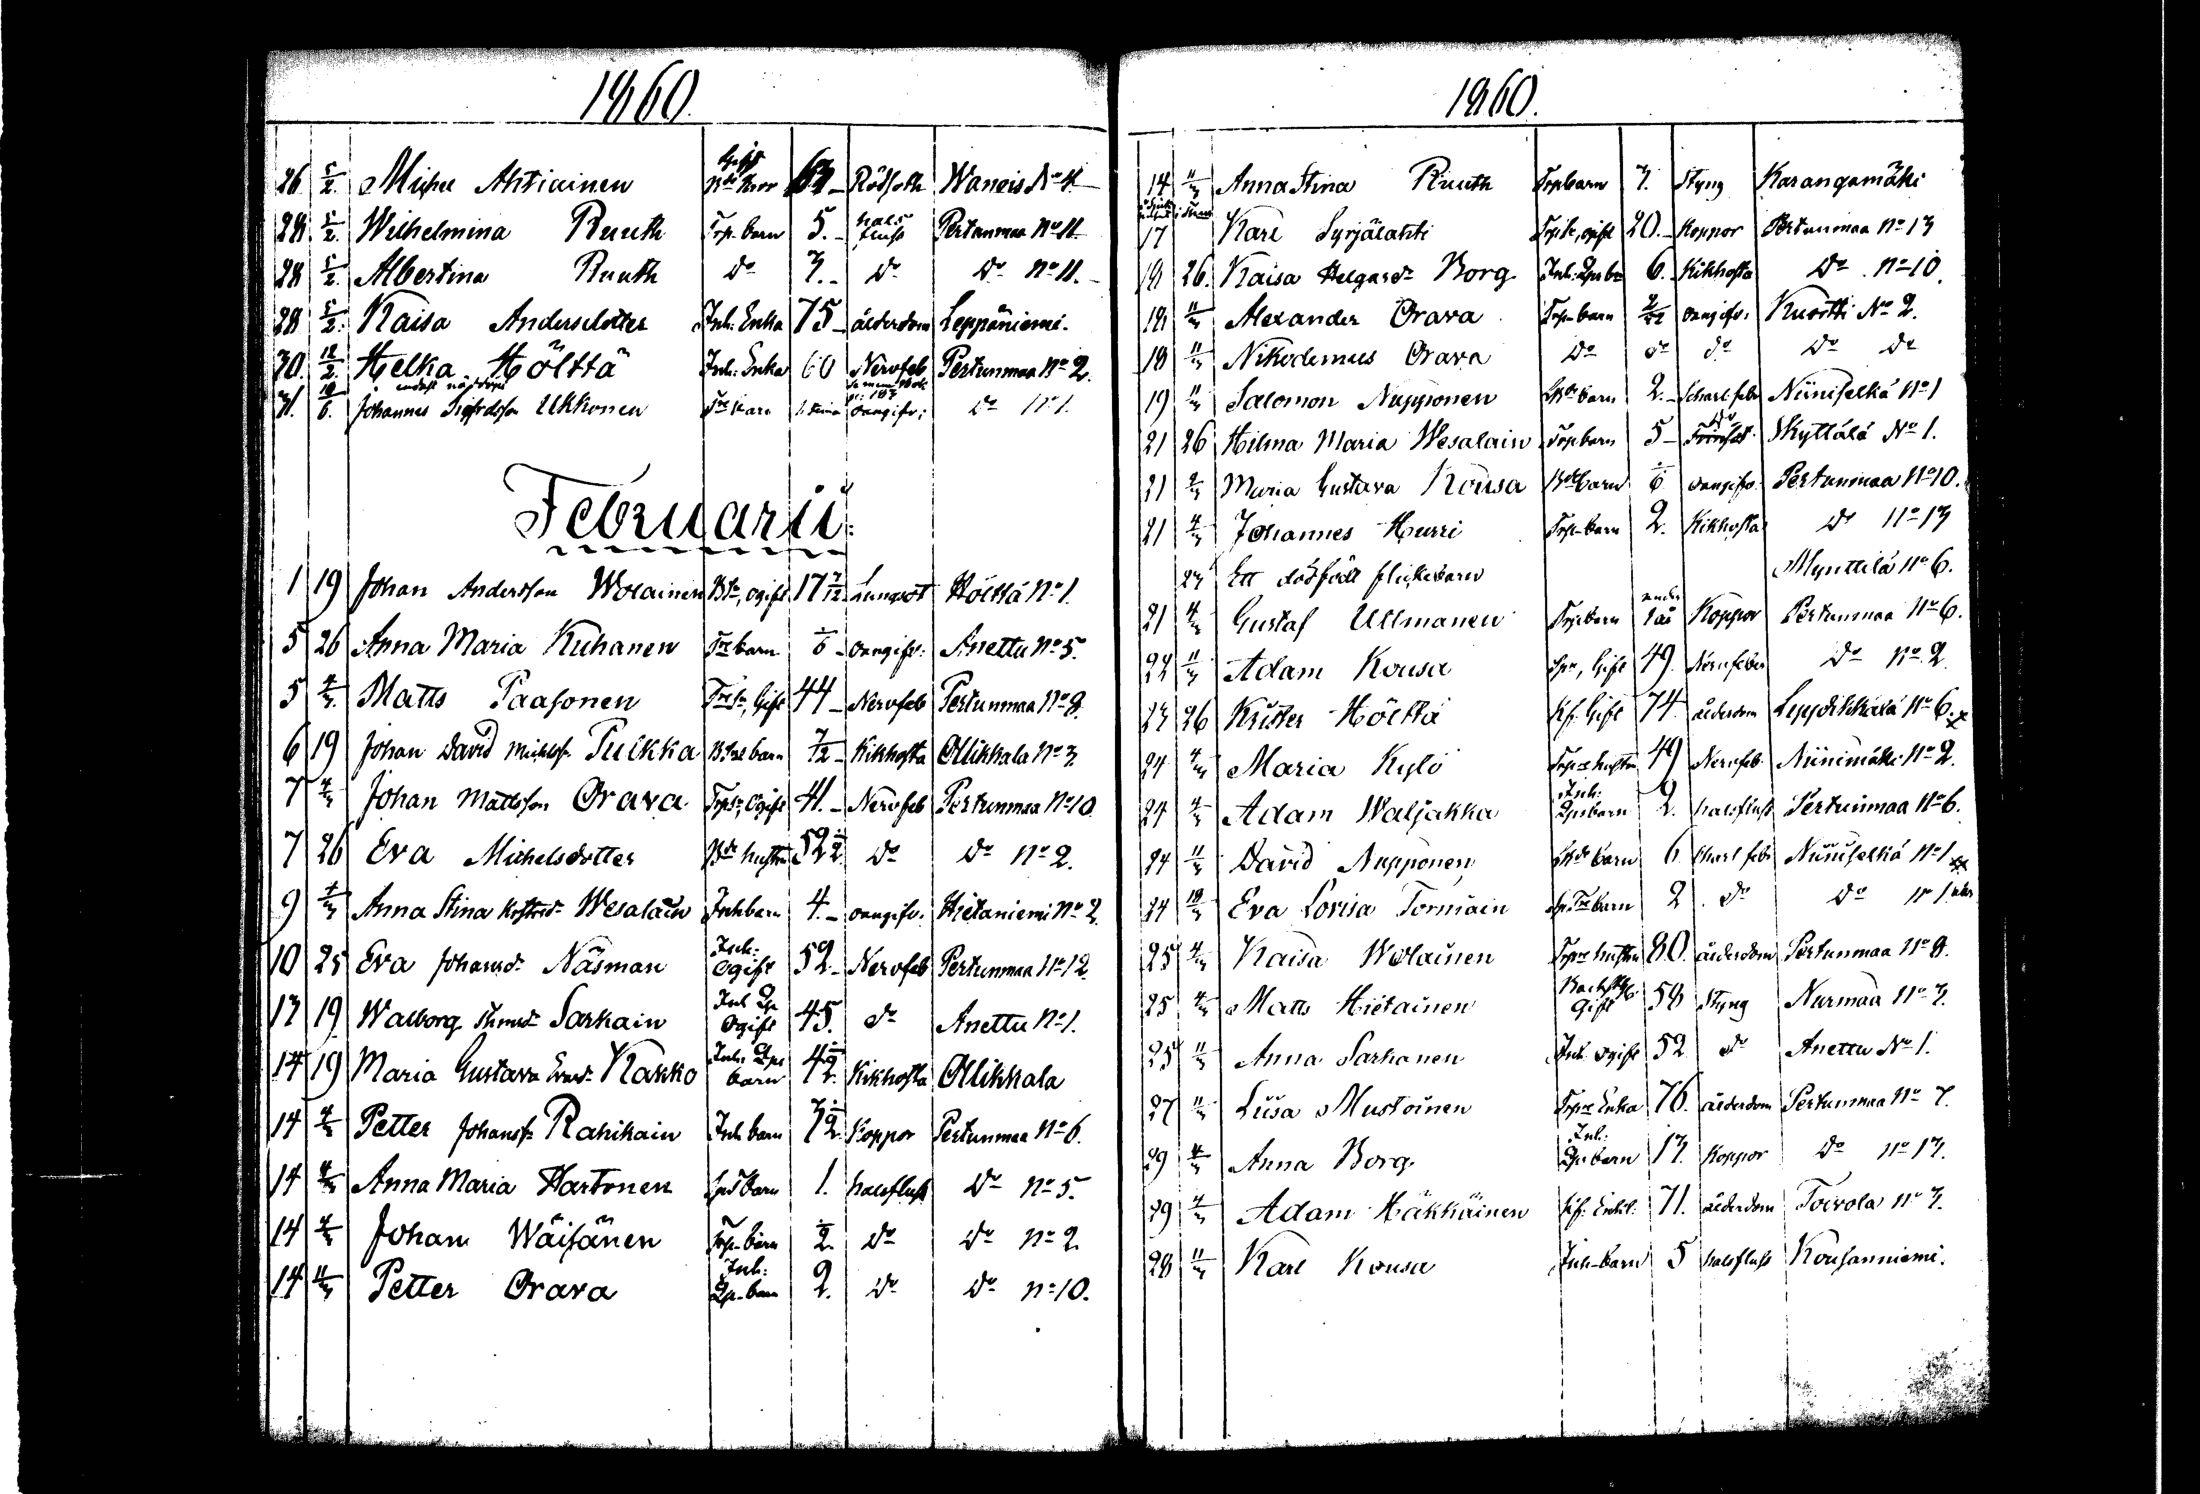 1860.
26. 5/2. Michel Ahtiainen Gift 63 Rödsoth Waneis No 4
28. 5/2. Wilhelmina Ruuth Trp. barn 5. hals fluss Pertunmaa No 11
28 5/2. Albertina Ruuth Do 3. Do Do No 11.
28 5/2. Kaisa Andersdotter Inh. Enka 75 ålderdom Leppäniemi.
30. 12/2. Helka Hölttä Inh. Enka 60 Nervfeb Pertunmaa No 2.
31. Johannes Ukkonen barn oangifv: Do No 1.
Februarii
1 19 Johan Andersson Wolainen ogift 17 7/12 Lungsot Höltta No 1.
5 26 Anna Maria Kuhanen barn oangifv: Anettu No 5.
5 4/3 Matts Paasonen Gift 44 Nervfeb Pertunmaa No 8.
6 19 Johan David Pulkka barn 7/12 Kikhosta Ollikkala No 3.
7 4/3 Johan Mattsson Orava Ogift 41. Nervfeb Pertunmaa No 10
7 26 Eva Michelsdotter hustru 52 1/2 Do Do No 2.
9 4/3 Anna Stina Wesalain Inh barn 4. oangifv: Hietaniemi No 2.
10 25 Eva Johansd: Näsman Inh: Ogift 52 Nervfeb Pertunmaa No 12.
13 19 Walborg Sarkain Ogift 45. Do Anettu No 1.
14 19 Maria Gustava Kakko barn 4 1/2. Kikhosta Ollikkala
14 4/3 Petter Johanss: Rahikain Inh barn 3 1/2. Koppor Pertunmaa No 6.
14 4/3 Anna Maria Hartonen barn 1. halsfluss Do No 5.
14 4/3 Johan Wäisänen Trp. barn 1/2. Do Do No 2.
14 11/3 Petter Orava Inh: barn 2. Do Do No 10.
1860.
14 11/3 Anna Stina Ruuth Trp barn 3. Styng Karangamäki
17 Karl Syrjälahti ogift 20. Koppor Pertunmaa No 13
18 26. Kaisa Helgasd: Borg 6. Kikhosta Do No 10.
18 11/3 Alexander Orava Trp. barn oangifv: Kuortti No 2.
18 11/3 Nikodemus Orava Do Do Do Do Do
19 11/3 Salomon Nupponen barn 2. Scharl. feb Niiniselkä No 1
21 26 Hilma Maria Wesalain Trp barn 5 Do Kyttälä No 1.
21 4/3 Maria Gustava Kousa barn 1/6 oangifv. Pertunmaa No 10.
21 4/3 Johannes Hurri Trp. barn 2. Kikhosta Do No 13
23 Ett dödfödt flickebarn Mynttilä No 6.
21 4/3 Gustaf Ullmanen Trp barn under 1 år Koppor Pertunmaa No 6.
22 11/3 Adam Kousa Gift 49. Nervfeber Do No 2.
23 26 Krister Höltta Gift 74. ålderdom No 6.
24 4/3 Maria Kylö hustru 49 Nervfeb. Niinimäki No 2.
24 4/3 Adam Waljakka Inh: barn 2. halsfluss Pertunmaa No 6.
24 11/3 David Nupponen barn 6. Scharl feb: Niiniselkä No 1
24 18/3 Eva Lovisa Törmäin barn 2 Do Do No 1
25 4/3 Kaisa Wolainen hustru 80. ålderdom Pertunmaa No 8.
25 4/3 Matts Hietainen Gift 58 Styng Nurmaa No 3.
25 11/3 Anna Sarkanen Inh. Ogift 52 Do Anettu No 1.
27 11/3 Liisa Mustoinen Enka 76. ålderdom Pertunmaa No 7.
29 4/3 Anna Borg Inh: barn 13. Koppor Do No 13.
29 4/3 Adam Häkkäinen Enkl. 71. ålderdom Toivola No 3.
28 11/3 Karl Kousa Inh. barn 5 halsfluss Kousanniemi.